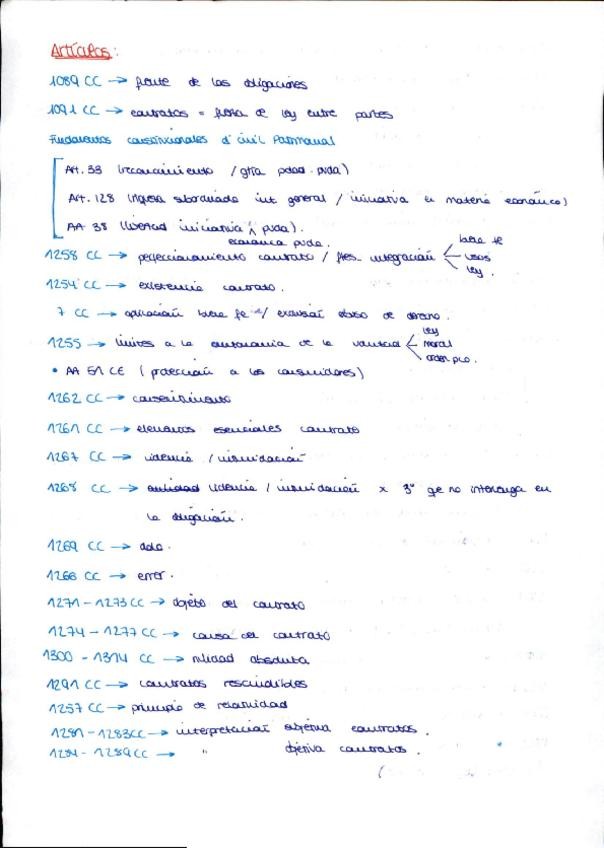 Artículos:
1089 CC → fuente de las obligaciones
1091 CC → contratos = fuerza de ley entre partes
Fundamentos constitucionales d' civil Patrimonial
Art. 33 (reconocimiento / gtía pdad. pvda)
Art. 128 (riqueza subordinada int. general / iniciativa en materia económica)
Art 38 (libertad iniciativa ^ pvda).
económica pvda.
1258 CC → perfeccionamiento contrato / integración buena fe
usos
ley.
1254 CC → existencia contrato.
7 CC → aplicación buena fe / exclusión abuso de derecho.
1255 → límites a la autonomía de la voluntad ley
moral
orden pco.
• Art 51 CE (protección a los consumidores)
1262 CC → consentimiento
1261 CC → elementos esenciales contrato
1267 CC → violencia / intimidación
1268 CC → violencia / intimidación x 3º qe no intervenga en
la obligación.
1269 CC → dolo.
1266 CC → error.
1271 - 1273 CC → objeto del contrato
1274 - 1277 CC → causa del contrato
1300 - 1314 CC → nulidad absoluta
1291 CC → contratos rescindibles
1257 CC → principio de relatividad
1281 - 1283 CC → interpretación subjetiva contratos.
1284 - 1289 CC → " objetiva contratos.